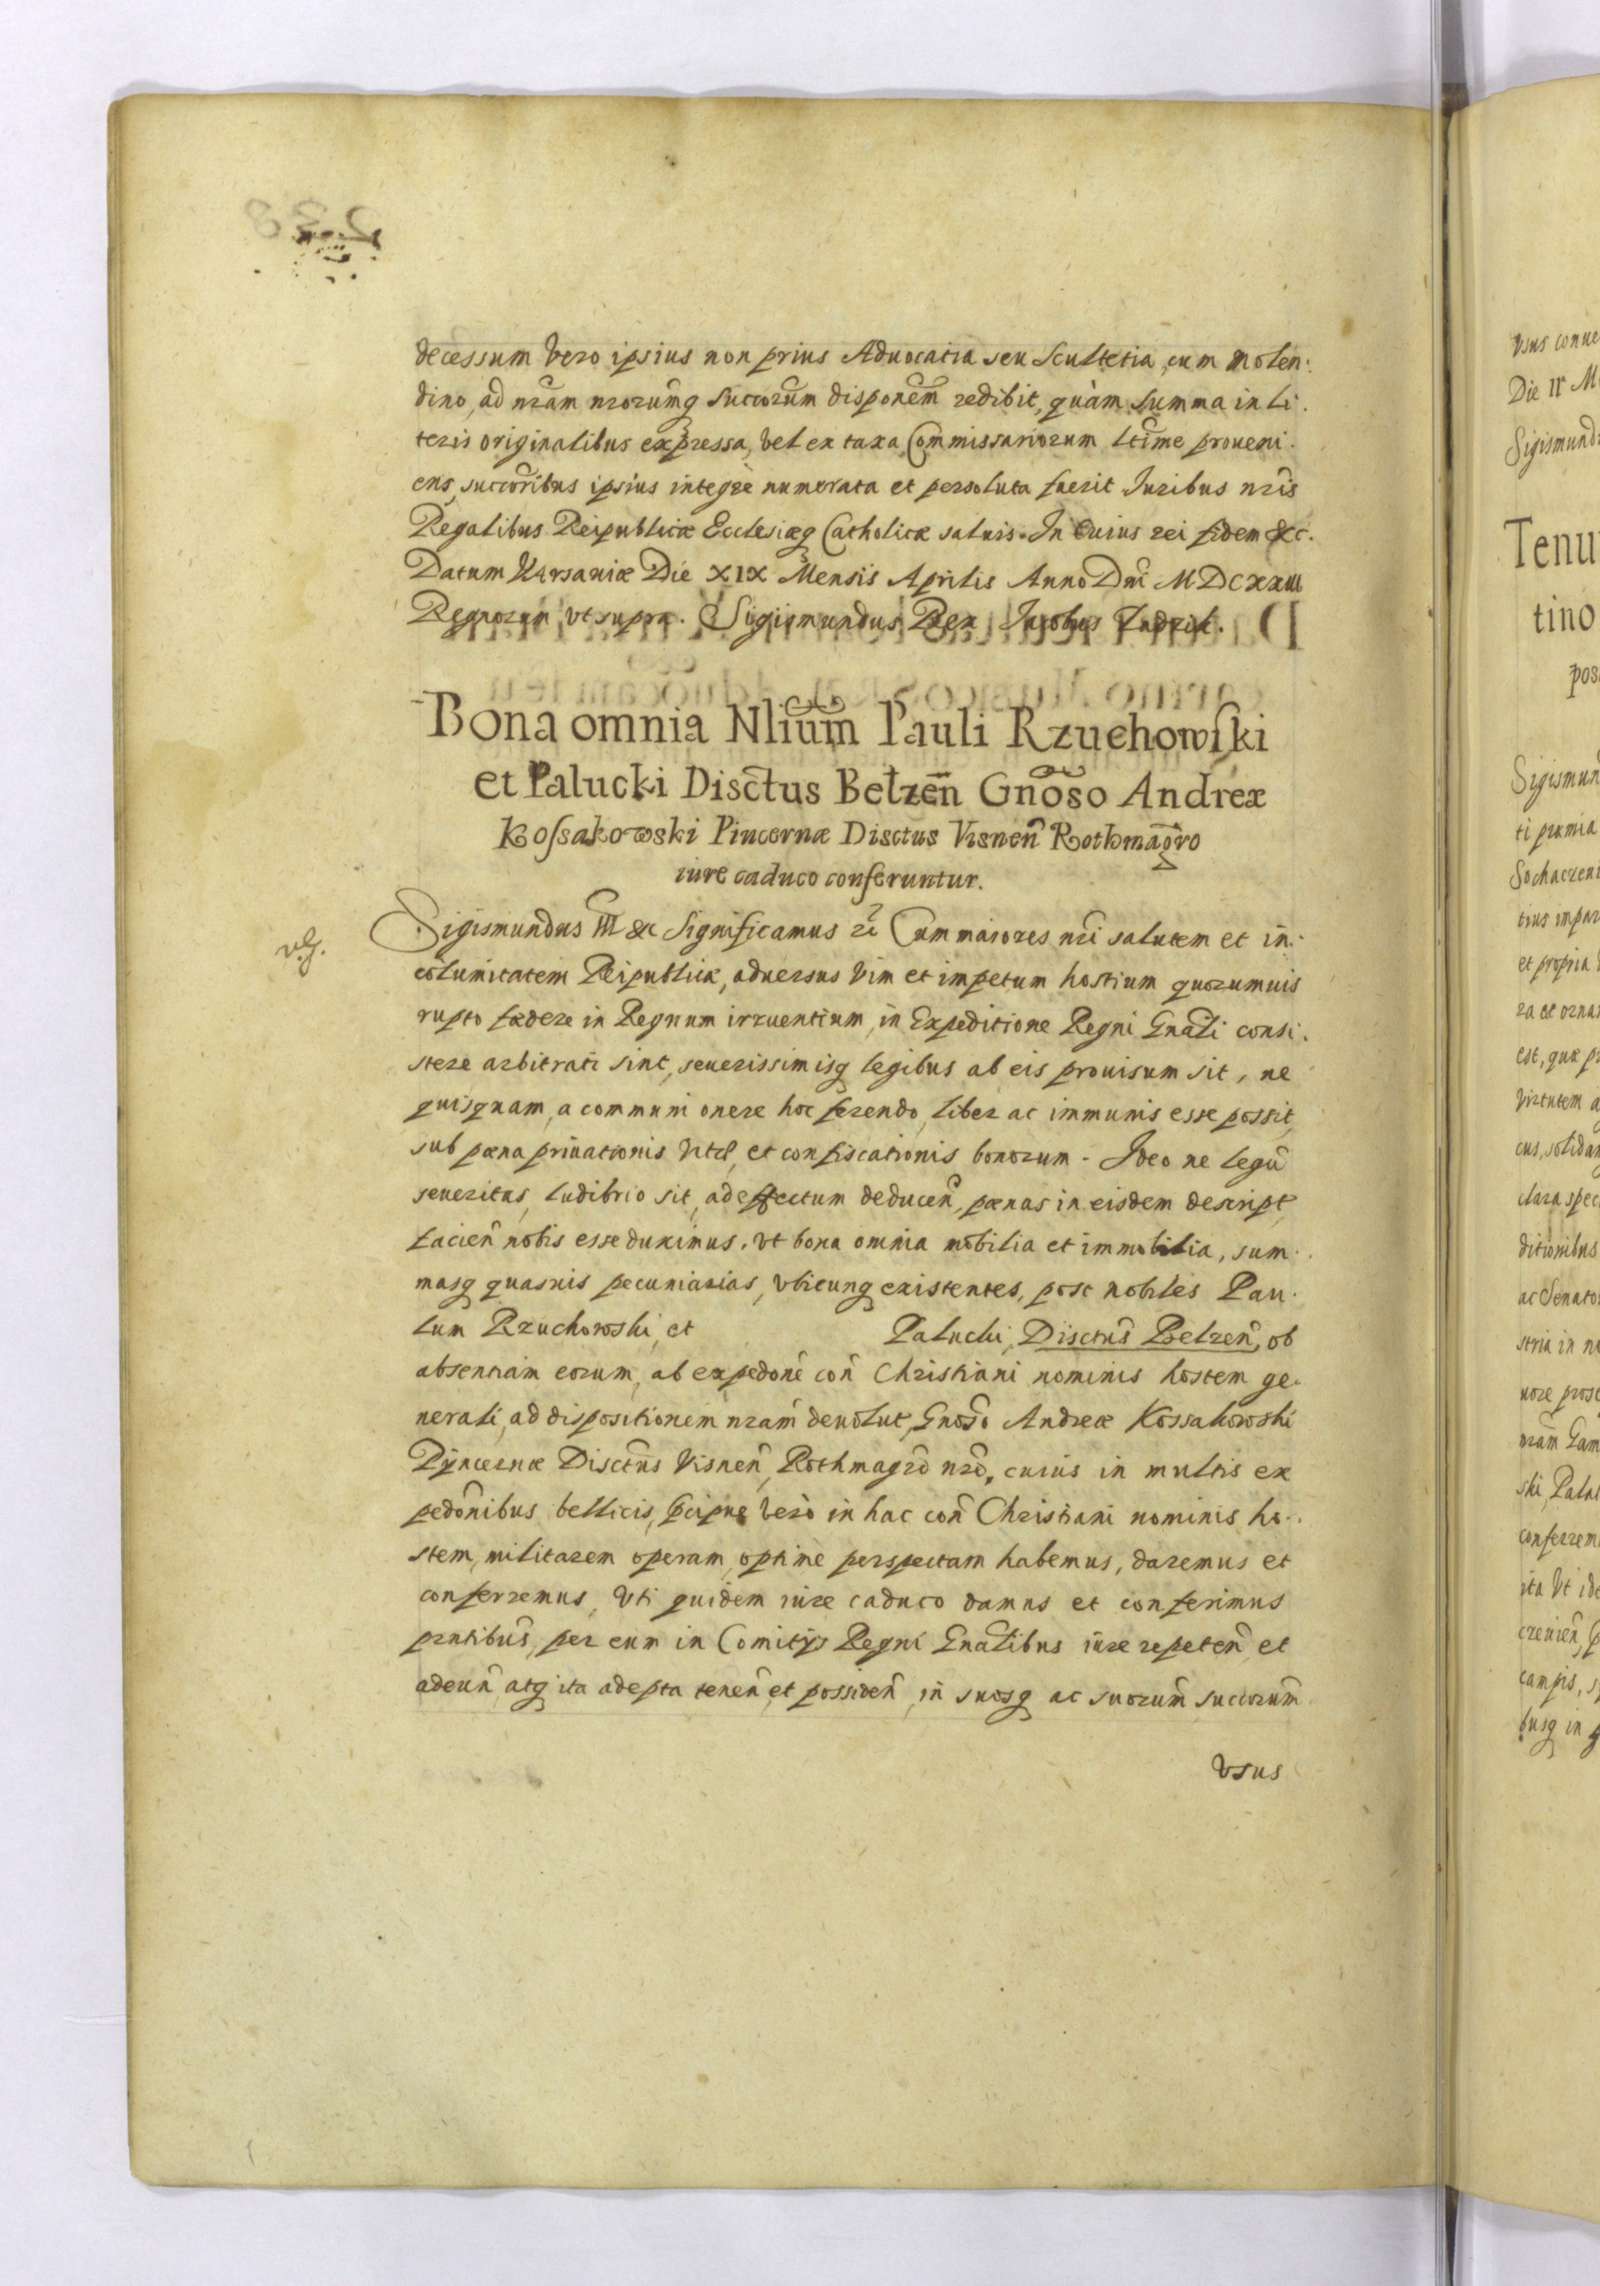 decessum vero ipsius non prius Aduocatia seu Scultetia, cum molen-
dino, ad nram nrorumq succorum disponem redibit, quàm summa in li-
teris originalibus expressa, vel ex taxa Commissariorum ltime proueni-
ens, succoribus ipsius integrè numerata et persoluta fuerit Iuribus nris
Regalibus Reipublicæ Ecclesiæq Catholicæ saluis. In Cuius rei fidem &c.
Datum Varsaviæ Die XIX Mensis Aprilis Anno Dni MDCXXIII
Regnorum vt supra. Sigismundus Rex Jacobus Zadzik.
Bona omnia Nlium Pauli Rzuchowski
et Palucki Disctus Belzen Gnoso Andreæ
Kossakowski Pincernæ Disctus Visnen Rothmagro
iure caduco conferuntur.
v.g.
Sigismundus III &c Significamus &c Cum maiores nri salutem et in-
columitatem Reipublicæ, aduersus vim et impetum hostium quorumuis
rupto fœdere in Regnum irruentium, in Expeditione Regni Gnali consi-
stere arbitrati sint, seuerissimisq legibus ab eis prouisum sit, ne
quisquam, a communi onere hoc ferendo, liber ac immunis esse possit,
sub pœna priuationis et confiscationis bonorum. Ideo ne legū
seueritas, ludibrio sit, ad effectum deducen, pœnas in eisdem descript,
facien nobis esse duximus. vt bona omnia mobilia et immobilia, sum-
masq quasuis pecuniarias, vbicunq existentes, post nobiles Pau-
lum Rzuchowski, et Palucki, Disctus Belzen, ob
absentiam eorum, ab expedone con Christiani nominis hostem ge-
nerali, ad dispositionem nram deuolut, Gnoso Andreæ Kossakowski
Pyncernæ Disctus Visnen, Rothmagro nro, cuius in multis ex
pedonibus bellicis, pcipue verò in hac con Christiani nominis ho-
stem, militarem operam, optime perspectam habemus, daremus et
conferremus, vti quidem iure caduco damus et conferimus
prntibus, per eum in Comitijs Regni Gnalibus iure repeten, et
adeun, atq ita adepta tenen, et possiden, in suosq ac suorum succorum
vsus